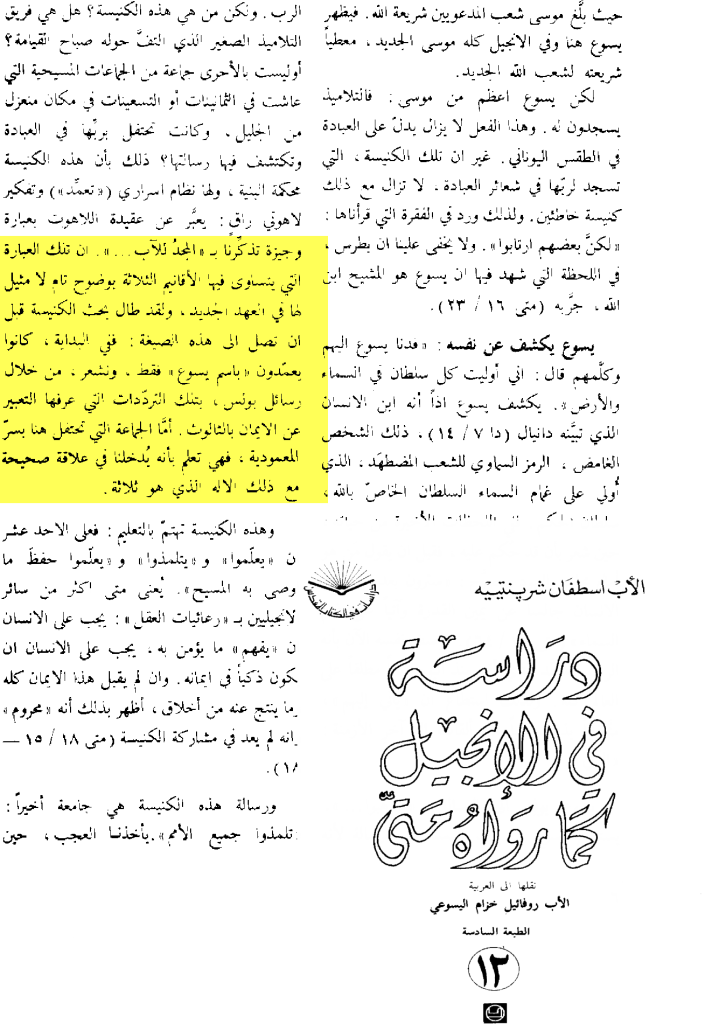 حيث بلَّغ موسى شعب المدعويين شريعة الله. فيظهر
يسوع هنا وفي الانجيل كله موسى الجديد ، معطياً
شريعته لشعب الله الجديد.
لكن يسوع اعظم من موسى : فالتلاميذ
يسجدون له . وهذا الفعل لا يزال يدلّ على العبادة
في الطقس اليوناني. غير ان تلك الكنيسة ، التي
تسجد لربّها في شعائر العبادة ، لا تزال مع ذلك
كنيسة خاطئين. ولذلك ورد في الفقرة التي قرأناها :
«لكنَّ بعضهم ارتابوا». ولا يخفى علينا ان بطرس ،
في اللحظة التي شهد فيها ان يسوع هو المشيح ابن
الله ، جرَّبه (متى ١٦ / ٢٣).
يسوع يكشف عن نفسه : «فدنا يسوع اليهم
وكلَّمهم قال : اني أوليت كل سلطان في السماء
والأرض». يكشف يسوع اذاً أنه ابن الانسان
الذي تبيَّنه دانيال (دا ٧ / ١٤) ، ذلك الشخص
الغامض ، الرمز السماوي للشعب المضطهَد ، الذي
أُولي على غمام السماء السلطان الخاصّ بالله ،
الرب . ولكن من هي هذه الكنيسة؟ هل هي فريق
التلاميذ الصغير الذي التفَّ حوله صباح القيامة؟
أوليست بالأحرى جماعة من الجماعات المسيحية التي
عاشت في الثمانينات أو التسعينات في مكان منعزل
من الجليل ، وكانت تحتفل بربّها في العبادة
وتكتشف فيها رسالتها؟ ذلك بأن هذه الكنيسة
محكمة البنية ، ولها نظام اسراري («تعمِّد») وتفكير
لاهوتي راقٍ : يعبَّر عن عقيدة اللاهوت بعبارة
وجيزة تذكِّرنا بـ «المجدُ للآب ...». ان تلك العبارة
التي يتساوى فيها الأقانيم الثلاثة بوضوح تام لا مثيل
لها في العهد الجديد ، ولقد طال بحث الكنيسة قبل
ان تصل الى هذه الصيغة : ففي البداية ، كانوا
يعمّدون «باسم يسوع» فقط ، ونشعر ، من خلال
رسائل بولس ، بتلك التردّدات التي عرفها التعبير
عن الايمان بالثالوث . أمّا الجماعة التي تحتفل هنا بسرّ
المعمودية ، فهي تعلم بأنه يُدخلنا في علاقة صحيحة
مع ذلك الاله الذي هو ثلاثة .
وهذه الكنيسة تهتمّ بالتعليم : فعلى الاحد عشر
ن «يعلّموا» و «يتلمذوا» و «يعلّموا حفظَ ما
وصى به المسيح». يُعنى متى اكثر من سائر
لانجيليين بـ «رعائيات العقل» : يجب على الانسان
ن «يفهم» ما يؤمن به ، يجب على الانسان ان
كون ذكياً في ايمانه . وان لم يقبل هذا الايمان كله
ما ينتج عنه من أخلاق ، أظهر بذلك أنه «محروم»
انه لم يعد في مشاركة الكنيسة (متى ١٨ / ١٥ —
١٨).
ورسالة هذه الكنيسة هي جامعة أخيراً :
تلمذوا جميع الأمم». يأخذنا العجب ، حين
الأب اسطفان شرپنتييه
دراسات في الكتاب المقدس
دراسة
في الإنجيل
كما رواه متّى
نقلها الى العربية
الأب روفائيل خزام اليسوعي
الطبعة السادسة
١٣